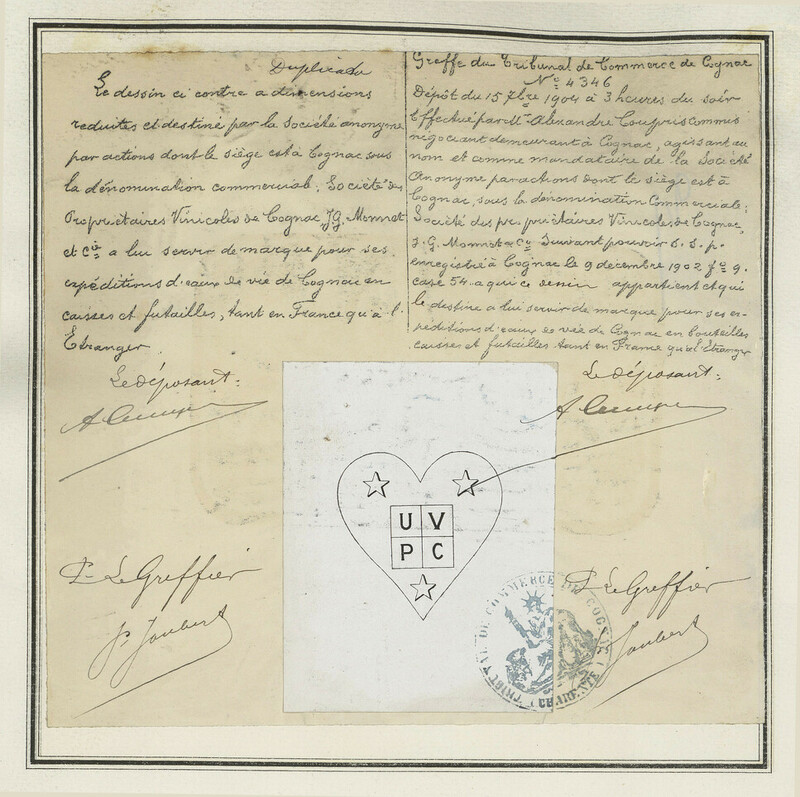 Duplicata
Le dessin ci contre a dimensions
reduites et destiné par la Société anonyme
par actions dont le siège est à Cognac sous
la dénomination commercial: Société des
Propriétaires Vinicoles de Cognac J.G. Monnet
et Cie a lui servir de marque pour ses
expéditions d'eaux de vie de Cognac en
caisses et futailles, tant en France qu'à l'
Étranger.
Le déposant:
Pr Le Greffier
Joubert
Greffe du Tribunal de Commerce de Cognac
No 4346
Dépôt du 15 7bre 1904 à 3 heures du soir
Effectué par Mr Alexandre Coupris commis
négociant demeurant à Cognac, agissant au
nom et comme mandataire de la Société
Anonyme par actions dont le siège est à
Cognac, sous la dénomination Commerciale:
Société des propriétaires Vinicoles de Cognac,
J.G. Monnet & Co Suivant pouvoir S.S.p.
enregistré à Cognac le 9 décembre 1902 fo 9.
case 54. a qui ce dessin appartient et qui
le destine a lui servir de marque pour ses ex-
péditions d'eaux de vie de Cognac en bouteilles
caisses et futailles tant en France qu'à l'Étranger
Le déposant:
Pr Le Greffier
Joubert
U V
P C
TRIBUNAL DE COMMERCE DE COGNAC
(CHARENTE)